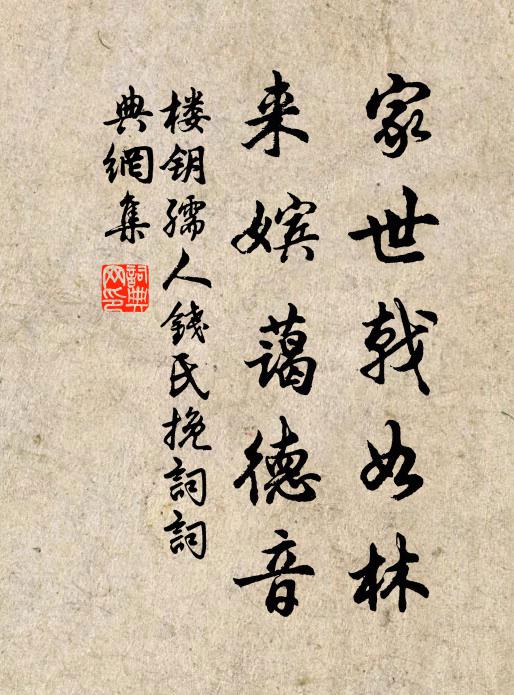 家世戟如林
来嫔蔼德音
楼钥孺人钱氏挽词词
典網集
詞典网印